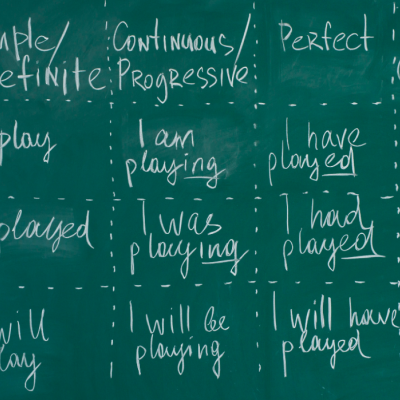 mple/
efinite
Continuous/
Progressive
Perfect
play
I am
playing
I have
played
played
I was
playing
I had
played
will
lay
I will be
playing
I will have
played